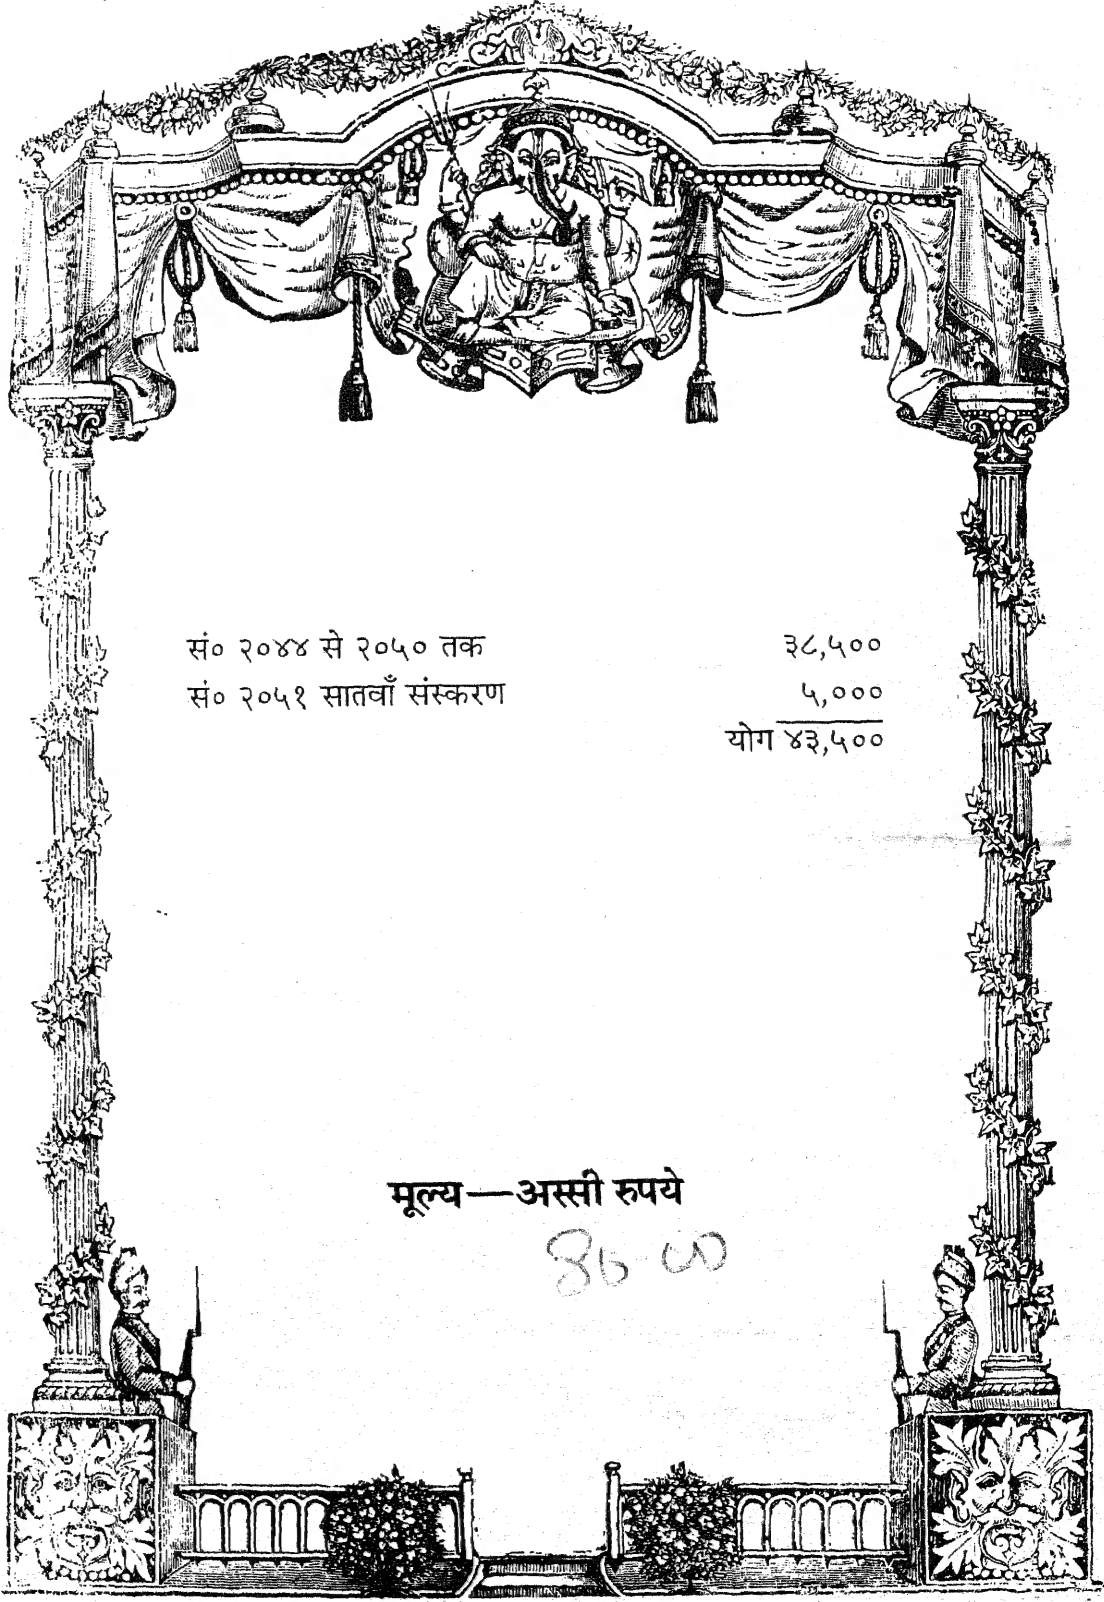 सं० २०४४ से २०५० तक ३८,५००
सं० २०५१ सातवाँ संस्करण ५,०००
योग ४३,५००
मूल्य—अस्सी रुपये